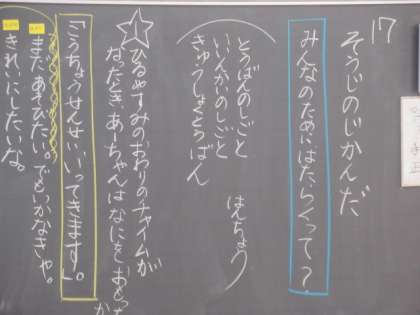 17
そうじのじかんだ
みんなのためにはたらくって?
とうばんのしごと
いいんかいのしごと
きゅうしょくとうばん
はんちょう
1
ひるやすみのおわりのチャイムが
なったとき、あーちゃんはなにをおもったか
「こうちょうせんせい、いってきます」。
まだあそびたい。でもいかなきゃ。
きれいにしたいな。